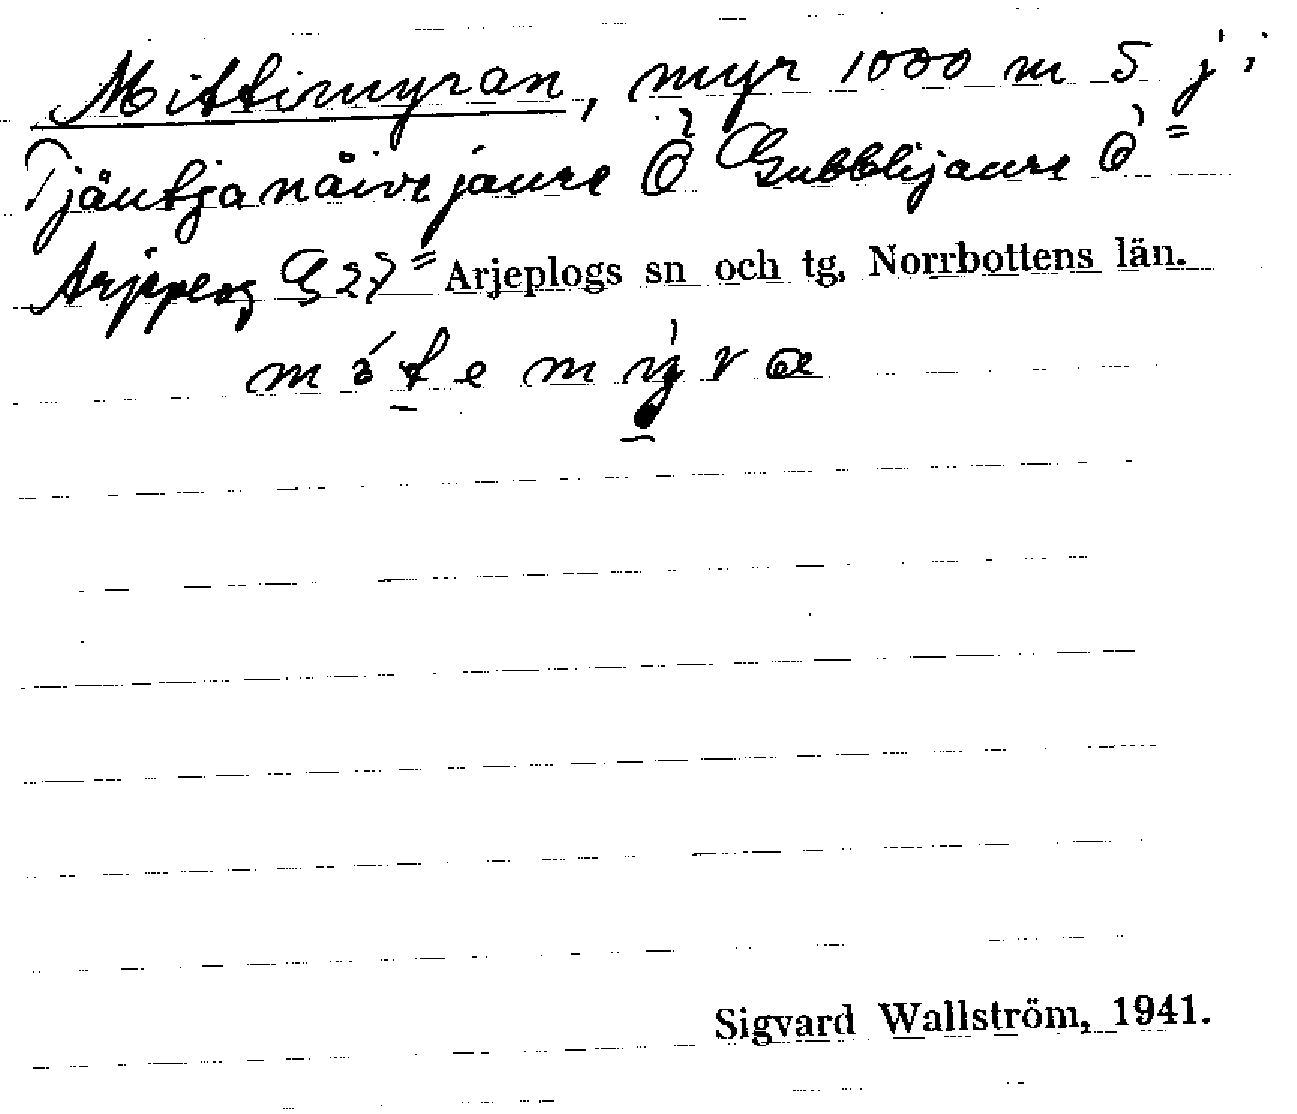 Mittimyran, myr 1000 m S j i
Tjäutjanäivejaure Ö Gubblijaure Ö =
Arjeplog G 27 = Arjeplogs sn och tg, Norrbottens län.
Sigvard Wallström, 1941.